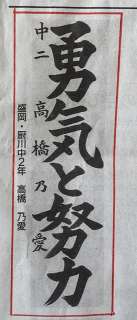 勇気と努力
中二 高橋乃愛
盛岡・厨川中2年 高橋 乃愛